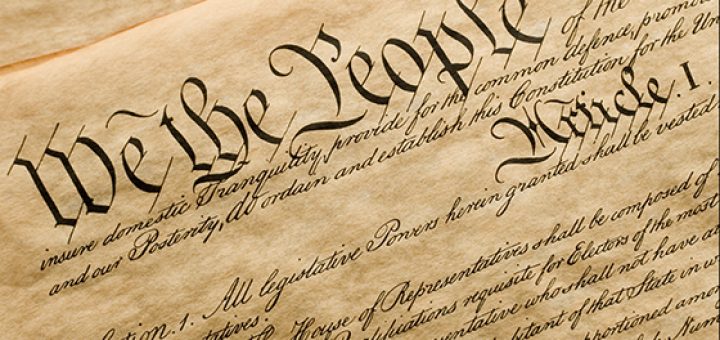 We the People of the
insure domestic Tranquility, provide for the common defence, promo
and our Posterity, do ordain and establish this Constitution for the Un
Article. I.
ction. 1. All legislative Powers herein granted shall be vested
ntatives.
House of Representatives shall be composed of
lifications requisite for Electors of the most
entative who shall not have at
bitant of that State in w
portioned amon
Num